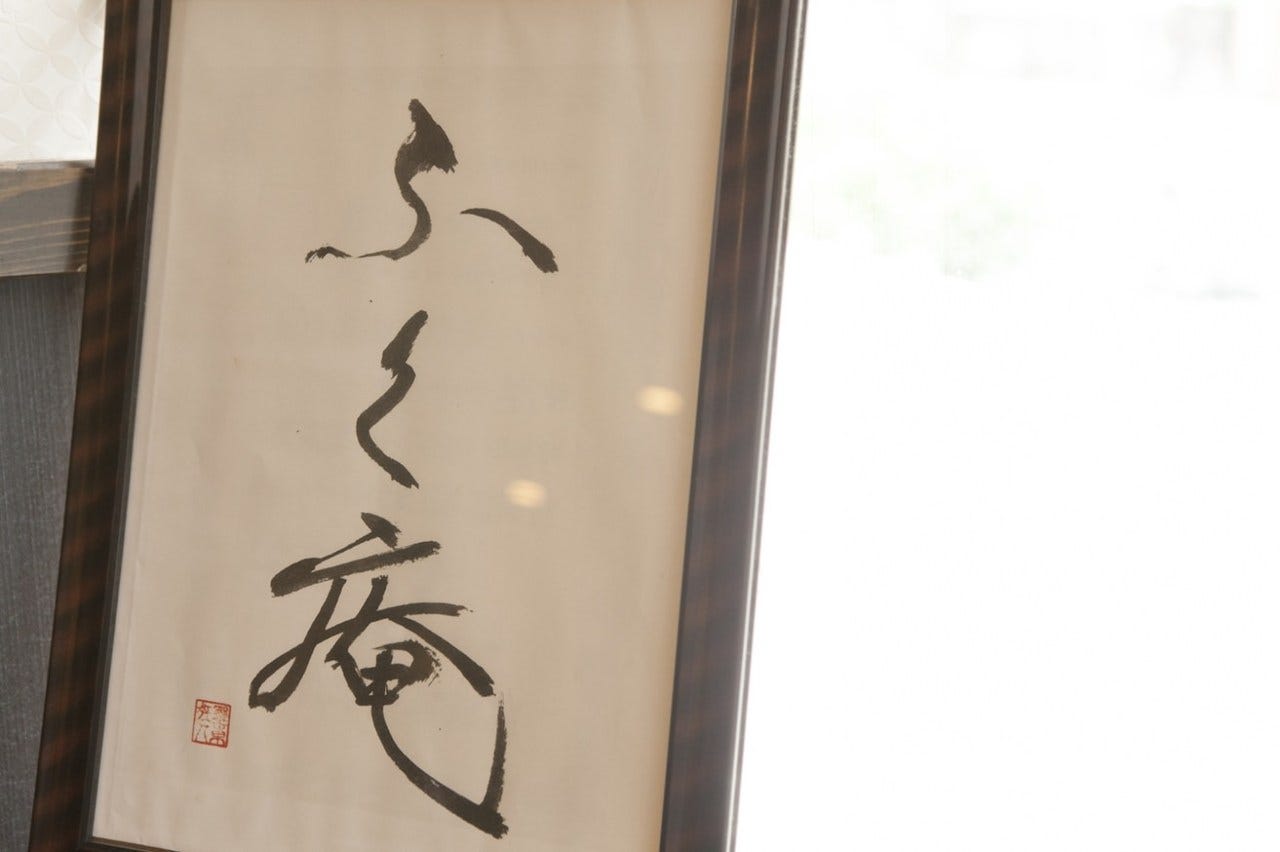 ふく庵